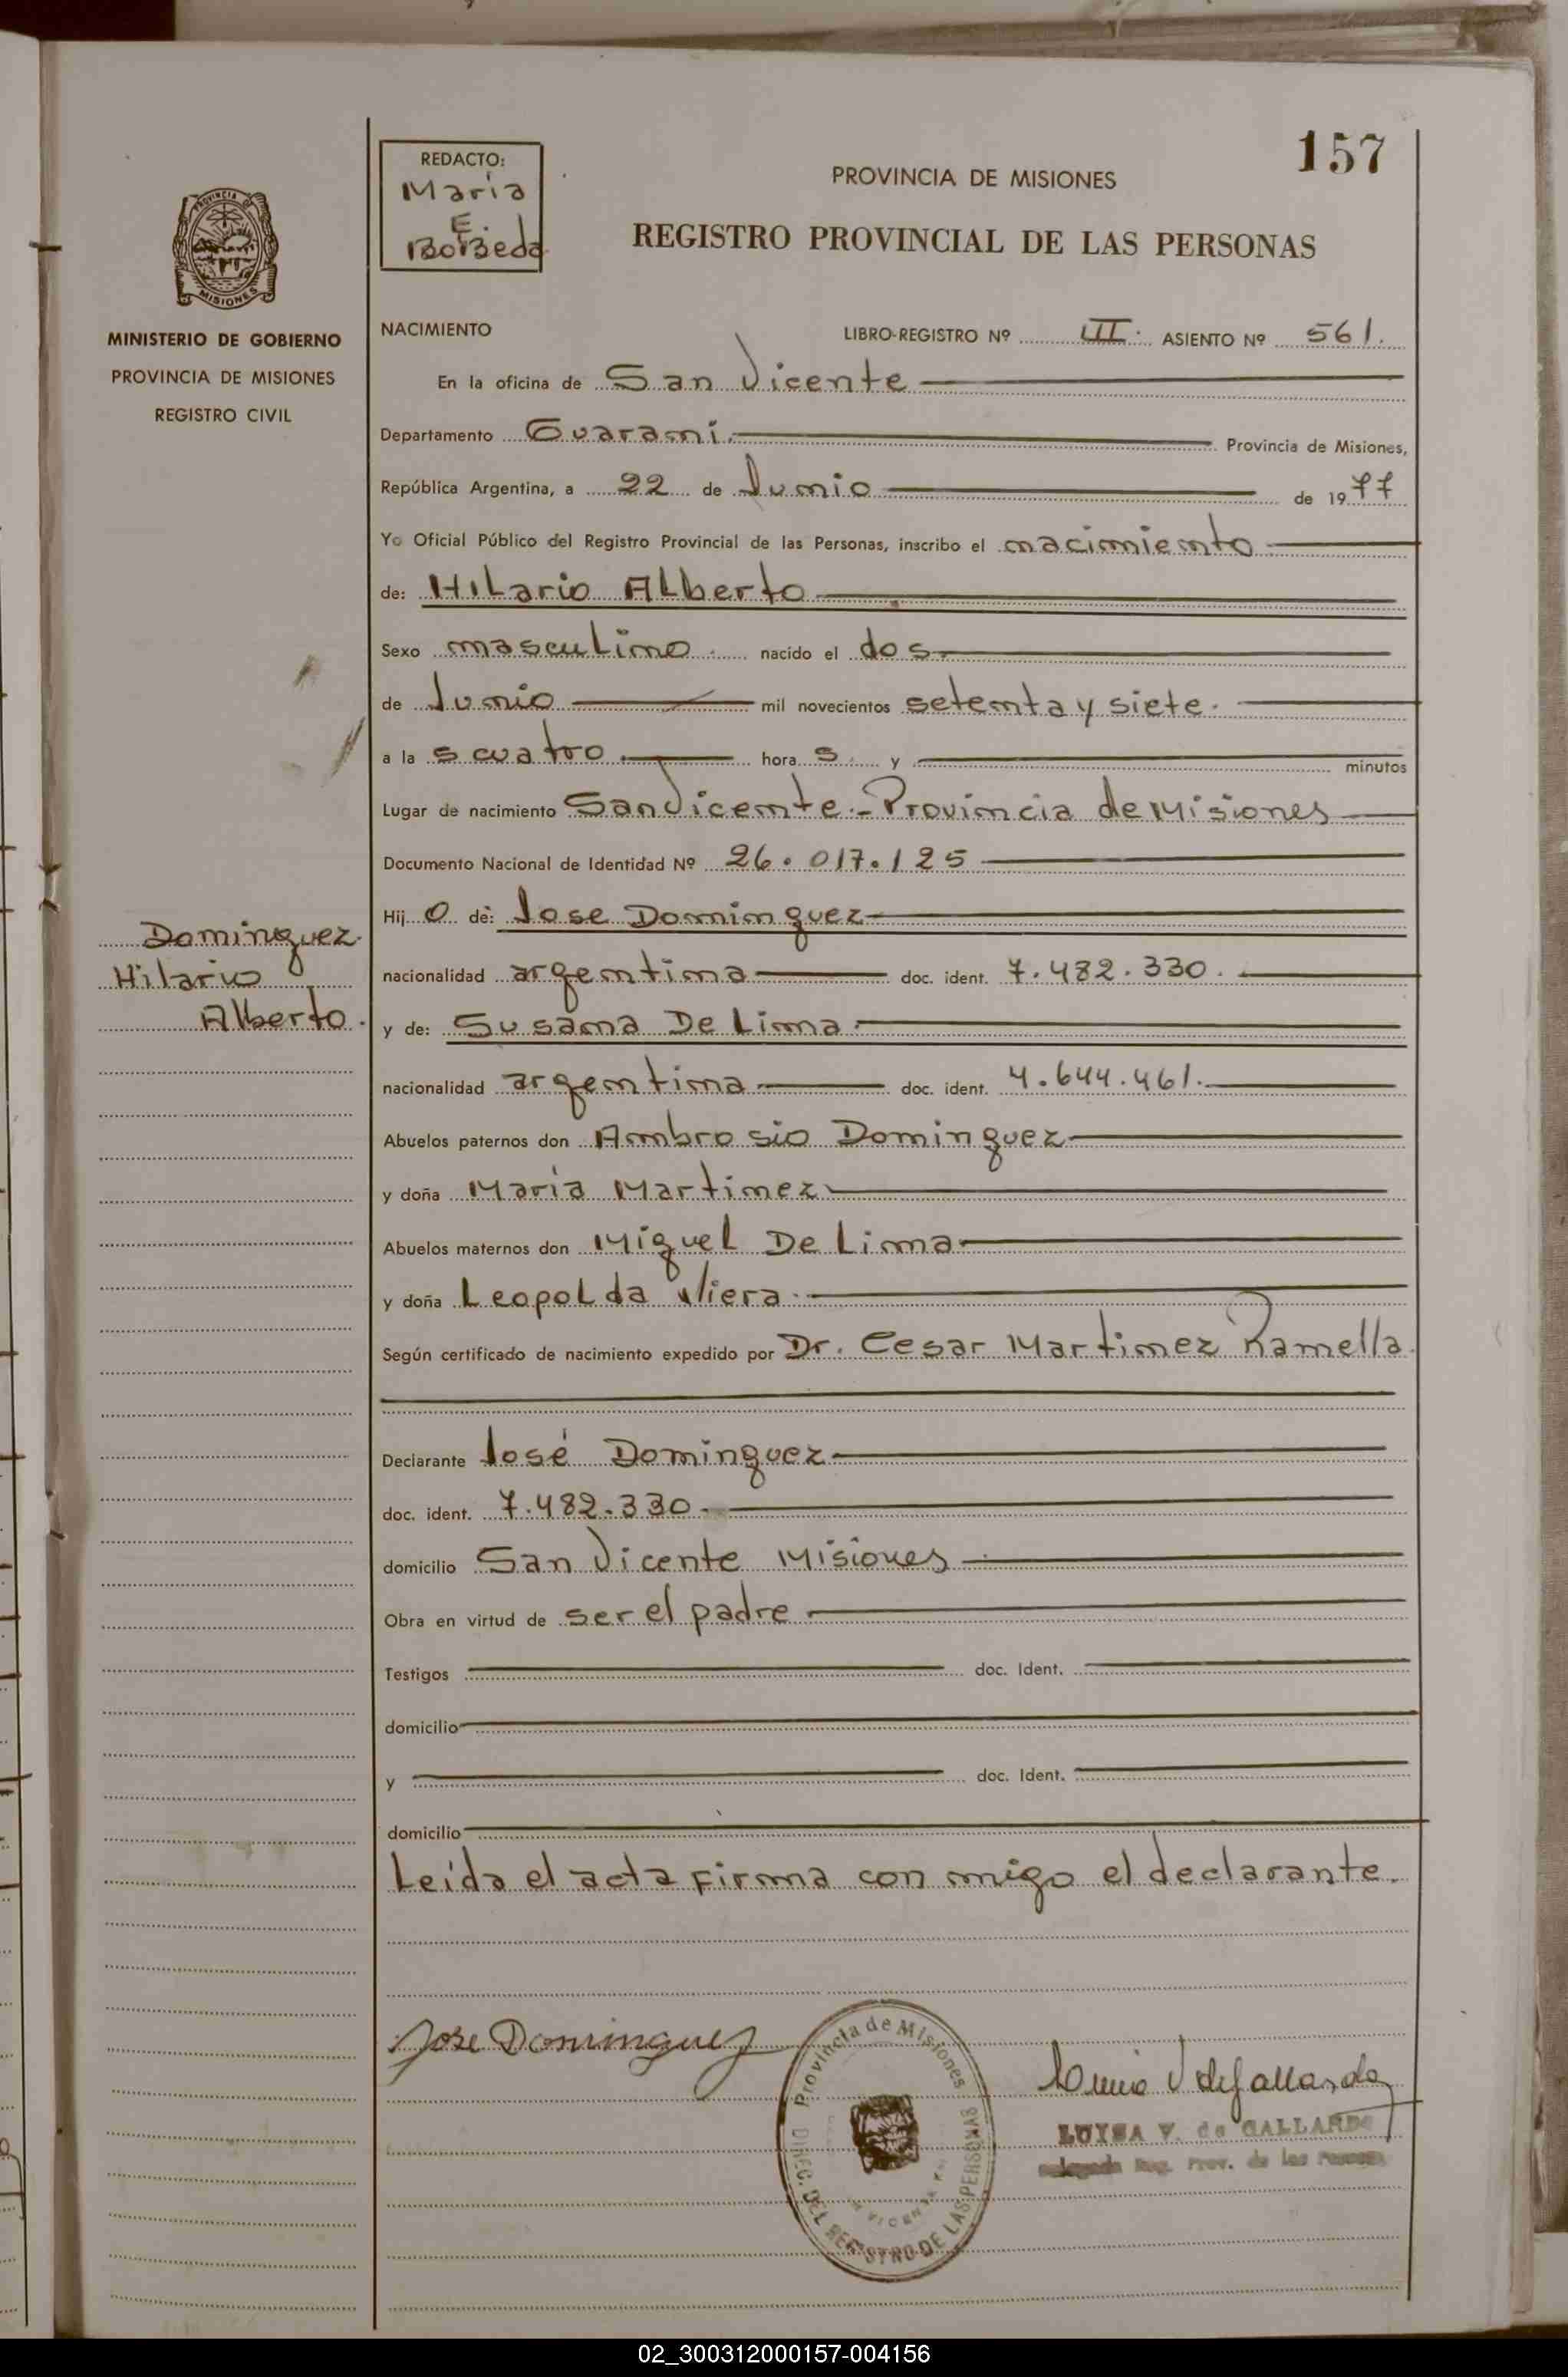 157
REDACTO:
Maria
E.
PROVINCIA DE MISIONES
REGISTRO PROVINCIAL DE LAS PERSONAS
MINISTERIO DE GOBIERNO
PROVINCIA DE MISIONES
REGISTRO CIVIL
NACIMIENTO LIBRO-REGISTRO Nº III. ASIENTO Nº 561.
En la oficina de San Vicente
Departamento Guaraní. Provincia de Misiones,
República Argentina, a 22 de Junio de 1977
Yo Oficial Público del Registro Provincial de las Personas, inscribo el nacimiento
de: Hilario Alberto
Sexo masculino. nacido el dos.
de Junio mil novecientos setenta y siete.
a las cuatro. horas y minutos
Lugar de nacimiento San Vicente.- Provincia de Misiones
Documento Nacional de Identidad Nº 26.017.125
Hijo de: Jose Dominguez
nacionalidad argentina doc. ident. 7.482.330.
y de: Susana De Lima
nacionalidad argentina doc. ident. 4.644.461.
Abuelos paternos don Ambrosio Dominguez
y doña María Martinez
Abuelos maternos don Miguel De Lima
y doña Leopolda Viera.
Según certificado de nacimiento expedido por Dr. Cesar Martinez Ramella.
Declarante José Dominguez
doc. ident. 7.482.330.
domicilio San Vicente Misiones
Obra en virtud de ser el padre
Testigos doc. Ident.
domicilio
y doc. Ident.
domicilio
Leída el acta firma con migo el declarante.
Dominguez.
Hilario
Alberto.
Jose Dominguez
Provincia de Misiones
DIREC. DEL REGISTRO DE LAS PERSONAS
LUISA V. de GALLARDO
Reg. Prov. de las Personas
02_300312000157-004156